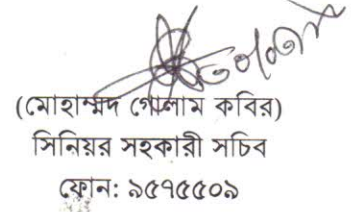 (মোহাম্মদ গোলাম কবির)
সিনিয়র সহকারী সচিব
ফোন: ৯৫৭৫৫০৯